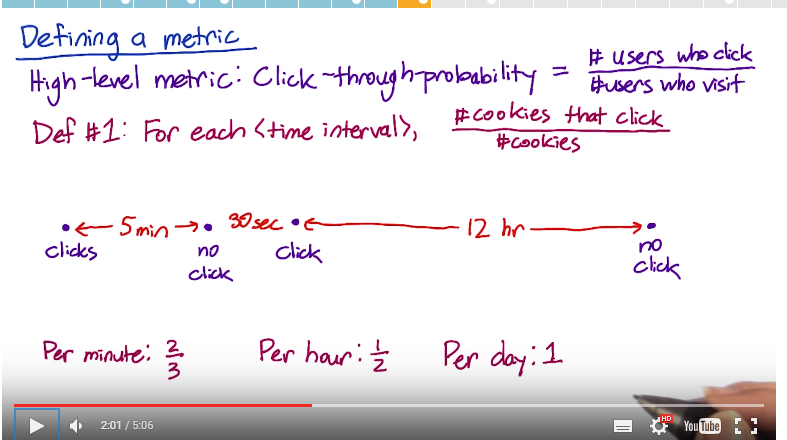 Defining a metric
High-level metric: Click-through-probability = # users who click
# users who visit
Def #1: For each <time interval>, # cookies that click
# cookies
5 min 30 sec 12 hr
clicks no click click no click
Per minute: 2/3 Per hour: 1/2 Per day: 1
2:01 / 5:06 HD YouTube